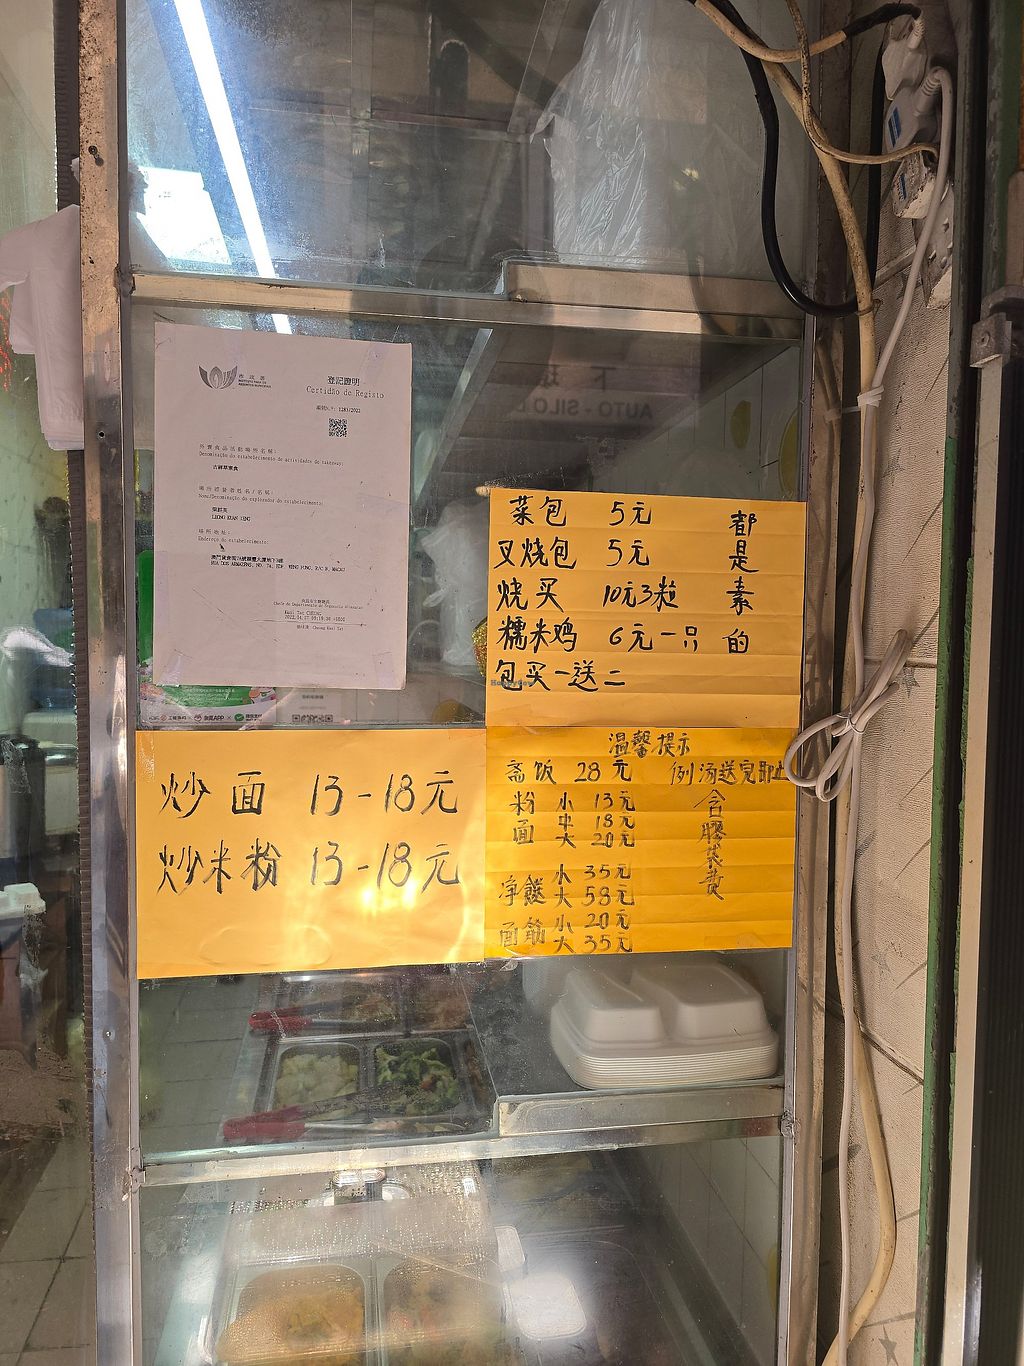 市政署
INSTITUTO PARA OS
ASSUNTOS MUNICIPAIS
登記證明
Certidão de Registo
編號N.º: 1283/2022
外賣食品活動場所名稱:
Denominação do estabelecimento de actividades de takeaway:
場所經營者姓名/名稱:
Nome/Denominação do explorador do estabelecimento:
LEONG KUAN IENG
場所地址:
Endereço do estabelecimento:
AUTO - SILO
菜包 5元
叉烧包 5元
烧买 10元3粒
糯米鸡 6元一只
包买一送二
都是素的
HappyCow
炒面 13-18元
炒米粉 13-18元
温馨提示
斋饭 28元 例汤送完即止
粉面 小 13元
中 18元
大 20元
净餸 小 35元
大 58元
面筋 小 20元
大 35元
含膠袋费